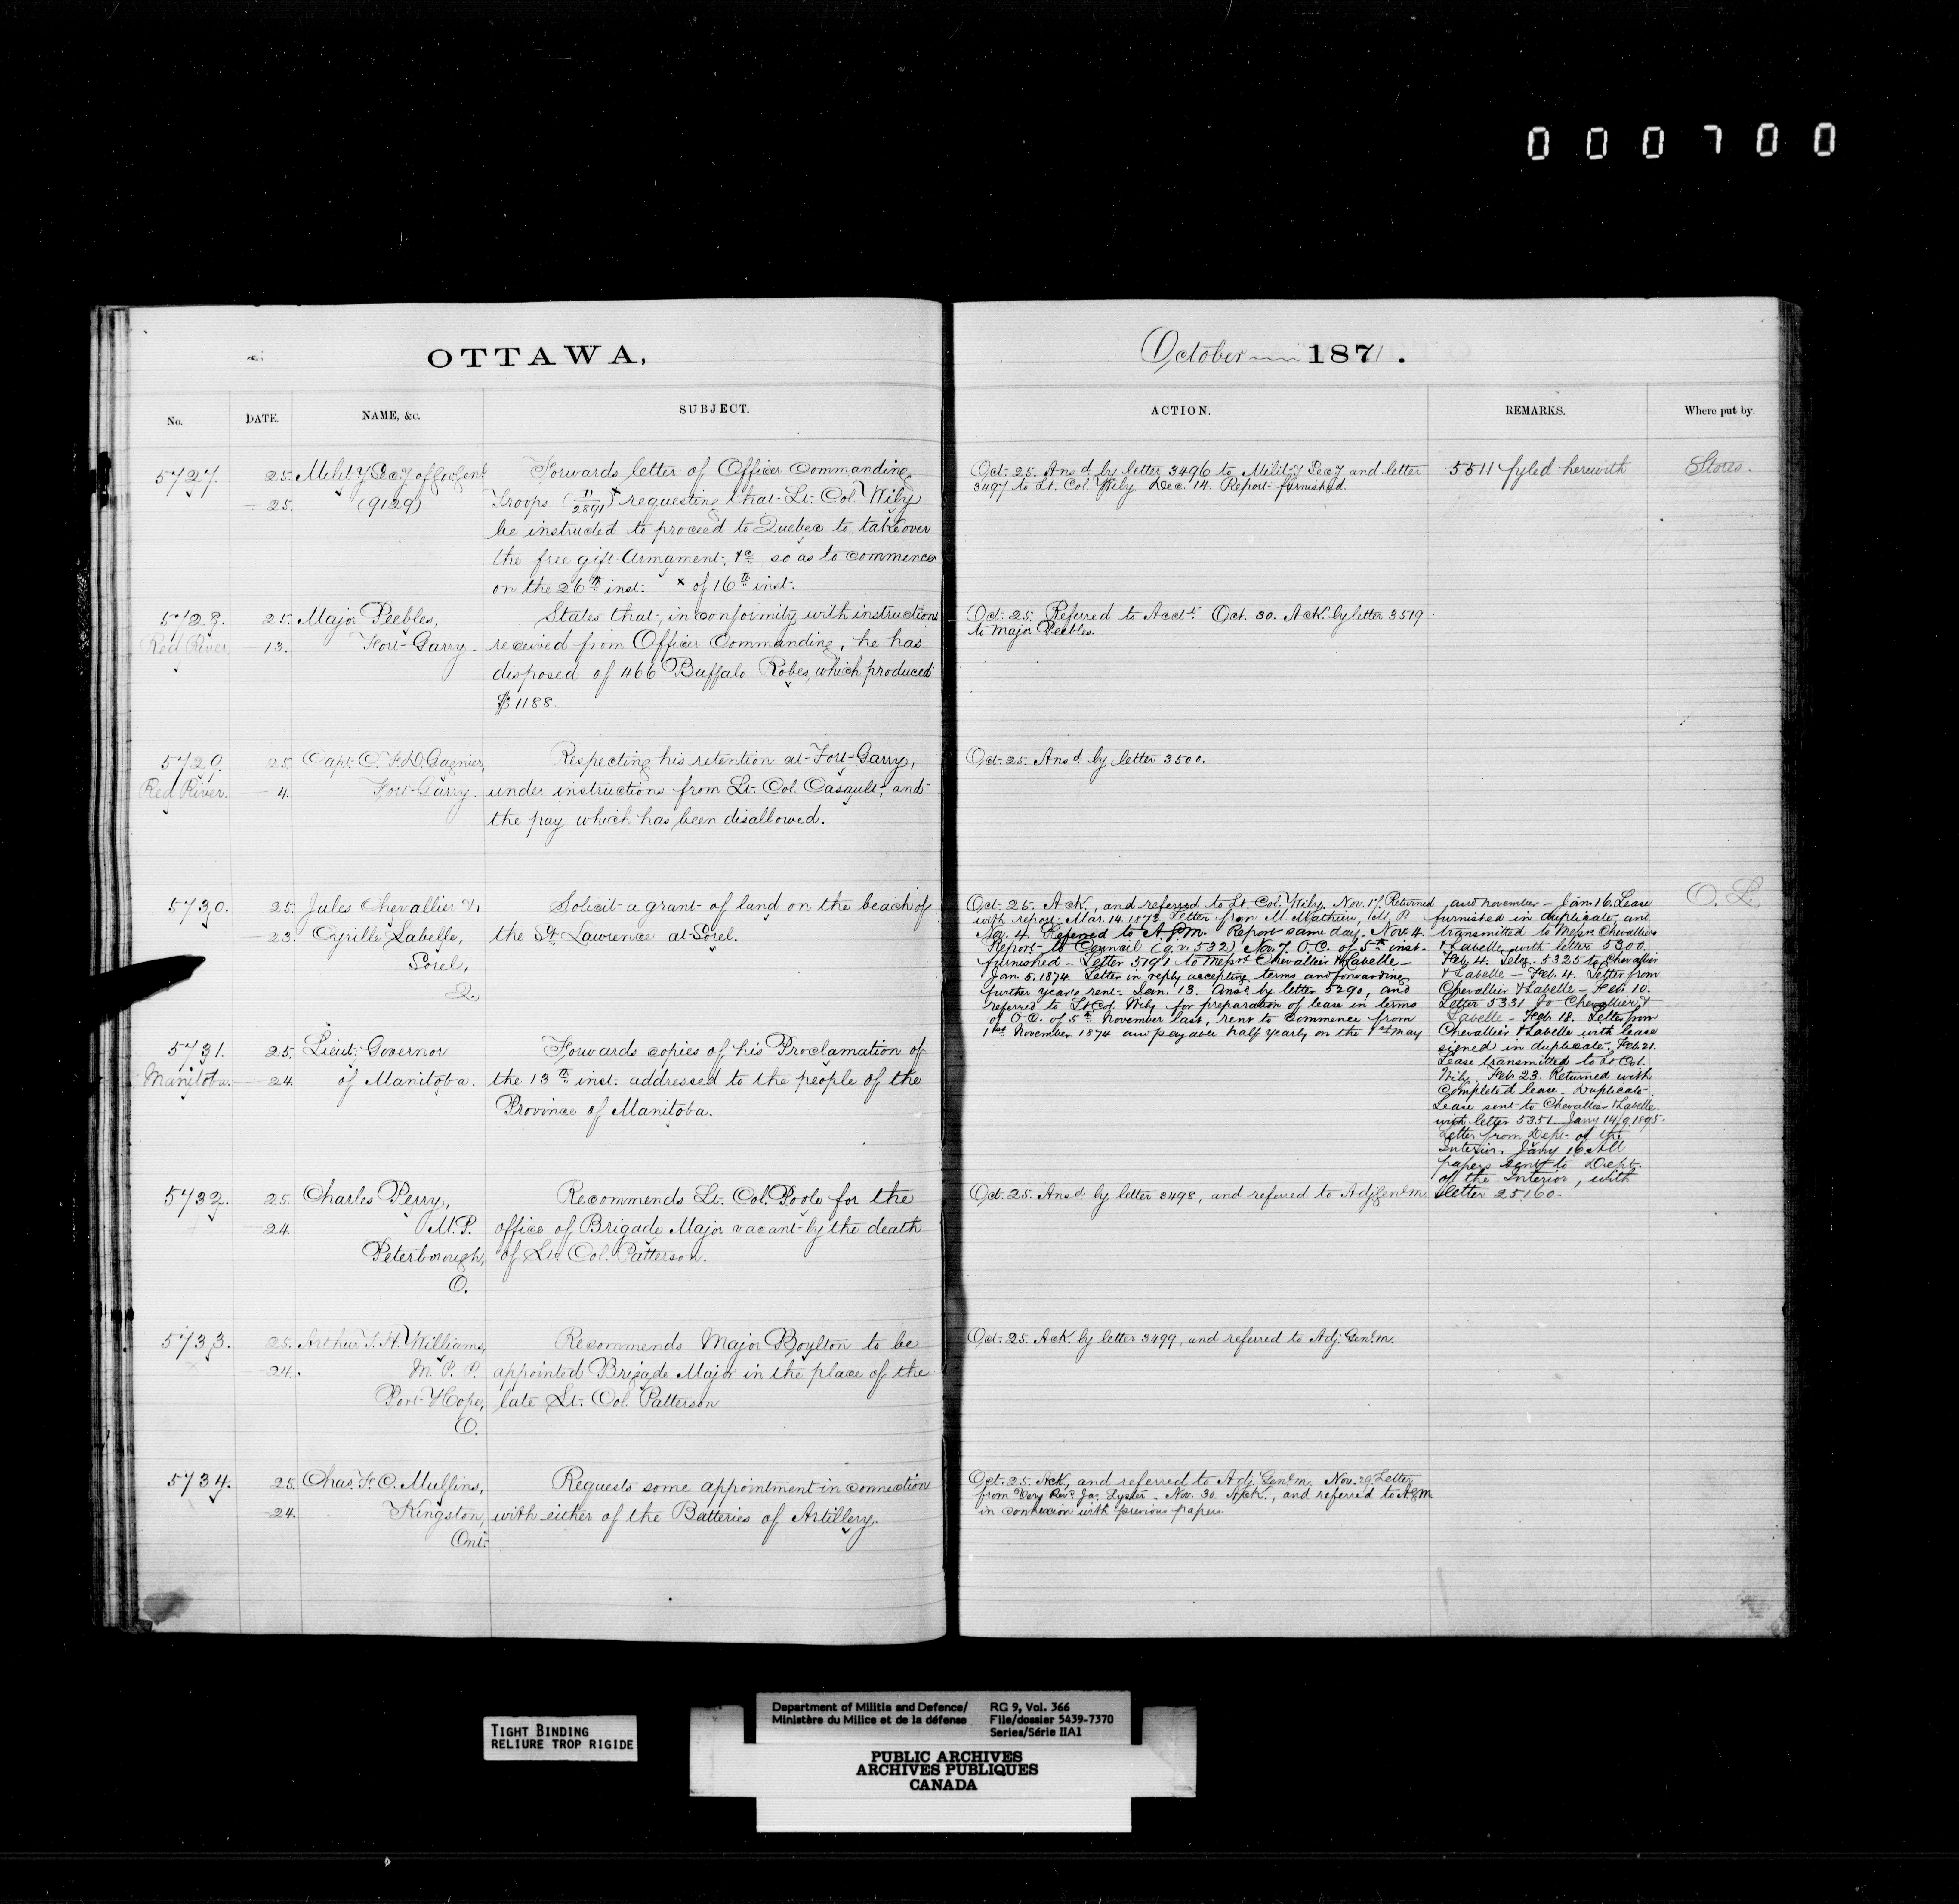 000700
OTTAWA,
October 1871.
No.
DATE.
NAME, &c.
SUBJECT.
ACTION.
REMARKS.
Where put by.
5727.
25. Mility Secy of
25. (9129)
Forwards letter of Officer Commanding
Troops (11/2891)x requesting that Lt. Col. Wily
be instructed to proceed to Quebec to take over
the free gift Armament, &c. so as to commence
on the 26th inst. x of 16th inst.
Oct. 25. Ansd. by letter 3496 to Mility Secy and letter
3497 to Lt. Col. Wily. Dec. 14. Report furnished.
5511 fyled herewith
Stores.
5728. 25. Major Peebles,
Red River. 13. Fort Garry.
States that, in conformity with instructions
received from Officer Commanding, he has
disposed of 466 Buffalo Robes, which produced
$1188.
Oct. 25. Referred to Acct. Oct. 30. Ack. by letter 3519
to Major Peebles.
5729. 25. Capt. C. F. D. Gagnier,
Red River. 4. Fort Garry.
Respecting his retention at Fort Garry,
under instructions from Lt. Col. Casault, and
the pay which has been disallowed.
Oct. 25. Ansd. by letter 3500.
5730. 25. Jules Chevallier &
23. Cyrille Labelle,
Sorel,
Q.
Solicit a grant of land on the beach of
the St. Lawrence at Sorel.
Oct. 25. Ack., and referred to Lt. Col. Wily. Nov. 17. Returned
with report. Mar. 14. 1873. Letter from M. Mathieu, M.P.
Nov. 4. Referred to A.G.M. Report same day. Nov. 4.
Report to Council (q.v. 532) Nov. 7. O.C. of 5th inst.
furnished - Letter 5191 to Messrs Chevallier & Labelle -
Jan. 5. 1874. Letter in reply accepting terms and forwarding
further year's rent. Jan. 13. Ansd. by letter 5290, and
referred to Lt Col. Wily for preparation of lease in terms
of O.C. of 5th November last, rent to commence from
1st November 1874 and payable half yearly on the 1st May
and November - Jan. 16. Lease
furnished in duplicate and
transmitted to Messrs Chevallier
& Labelle with letter 5300.
Feb. 4. 5325 to Chevallier
& Labelle - Feb. 4. Letter from
Chevallier & Labelle - Feb. 10.
Letter 5331 to Chevallier &
Labelle - Feb. 18. Letter from
Chevallier & Labelle with lease
signed in duplicate. Feb. 21.
Lease transmitted to Lt. Col.
Wily. Feb. 23. Returned with
completed lease. Duplicate
Lease sent to Chevallier & Labelle
with letter 5351. Jany 14/9.1895.
Letter from Dept. of the
Interior. Jany 16. All
papers sent to Dept.
of the Interior, with
letter 25160.
O. L.
5731. 25. Lieut. Governor
Manitoba. 24. of Manitoba.
Forwards copies of his Proclamation of
the 13th inst. addressed to the people of the
Province of Manitoba.
5732. 25. Charles Perry,
24. M.P.
Peterborough,
O.
Recommends Lt. Col. Poole for the
office of Brigade Major vacant by the death
of Lt. Col. Patterson.
Oct. 25. Ansd. by letter 3498, and referred to Adj. Genl. m.
5733. 25. Arthur T. H. Williams,
24. M.P.P.
Port Hope,
O.
Recommends Major Boylton to be
appointed Brigade Major in the place of the
late Lt. Col. Patterson
Oct. 25. Ack. by letter 3499, and referred to Adj. Genl. m.
5734. 25. Chas. F. C. Mullins,
24. Kingston,
Ont.
Requests some appointment in connection
with either of the Batteries of Artillery.
Oct. 25. Ack., and referred to Adj. Genl. m. Nov. 29. Letter
from Very Revd. Jas. Lyster. Nov. 30. Ack., and referred to A.G.M.
in connexion with previous papers.
TIGHT BINDING
RELIURE TROP RIGIDE
Department of Militia and Defence/
Ministère du Milice et de la défense
RG 9, Vol. 366
File/dossier 5439-7370
Series/Série IIA1
PUBLIC ARCHIVES
ARCHIVES PUBLIQUES
CANADA